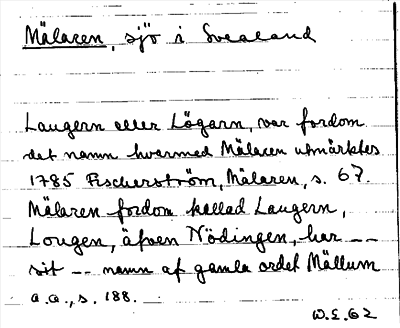 Mälaren, sjö i Svealand
Laugern eller Lögarn, var fordom
det namn hvarmed Mälaren utmärktes
1785 Fischerström, Mälaren, s. 67.
Mälaren fordom kallad Laugern,
Lougen, äfven Nödingen, har --
sit -- namn af gamla ordet Mällum
a.a., s. 188.
W.E. 62